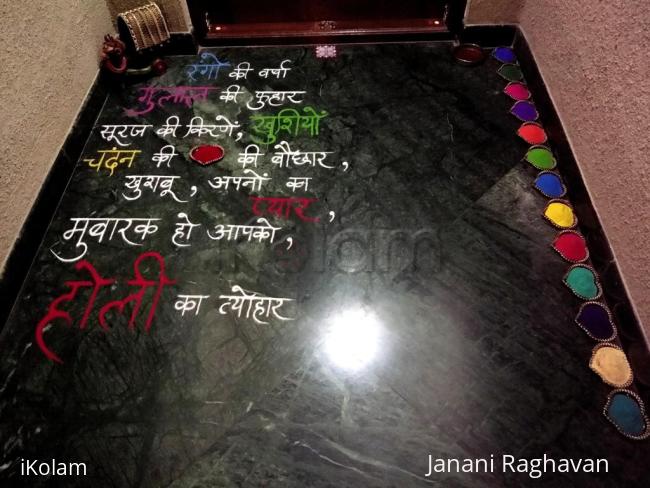 रंगों की वर्षा
गुलाल की फुहार
सूरज की किरणें, खुशियों
चदंन की की बौछार,
खुशबू, अपनों का
प्यार,
मुबारक हो आपको,
होली का त्योहार
iKolam
iKolam
Janani Raghavan